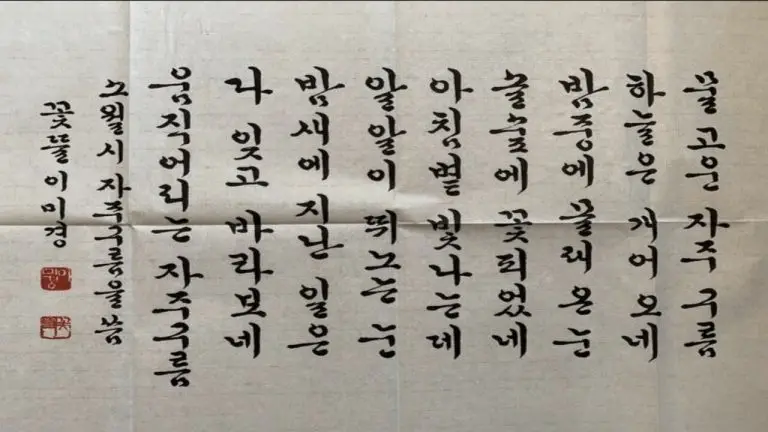 물 고은 자주 구름
하늘은 개어 오네
밤중에 몰래 온 눈
솔숲에 꽃피었네
아침볕 빛나는데
알알이 뛰노는 눈
밤새에 지난 일은
다 잊고 바라보네
움직어리는 자주구름
소월 시 자주구름을 씀
꽃뜰 이미경
이미경